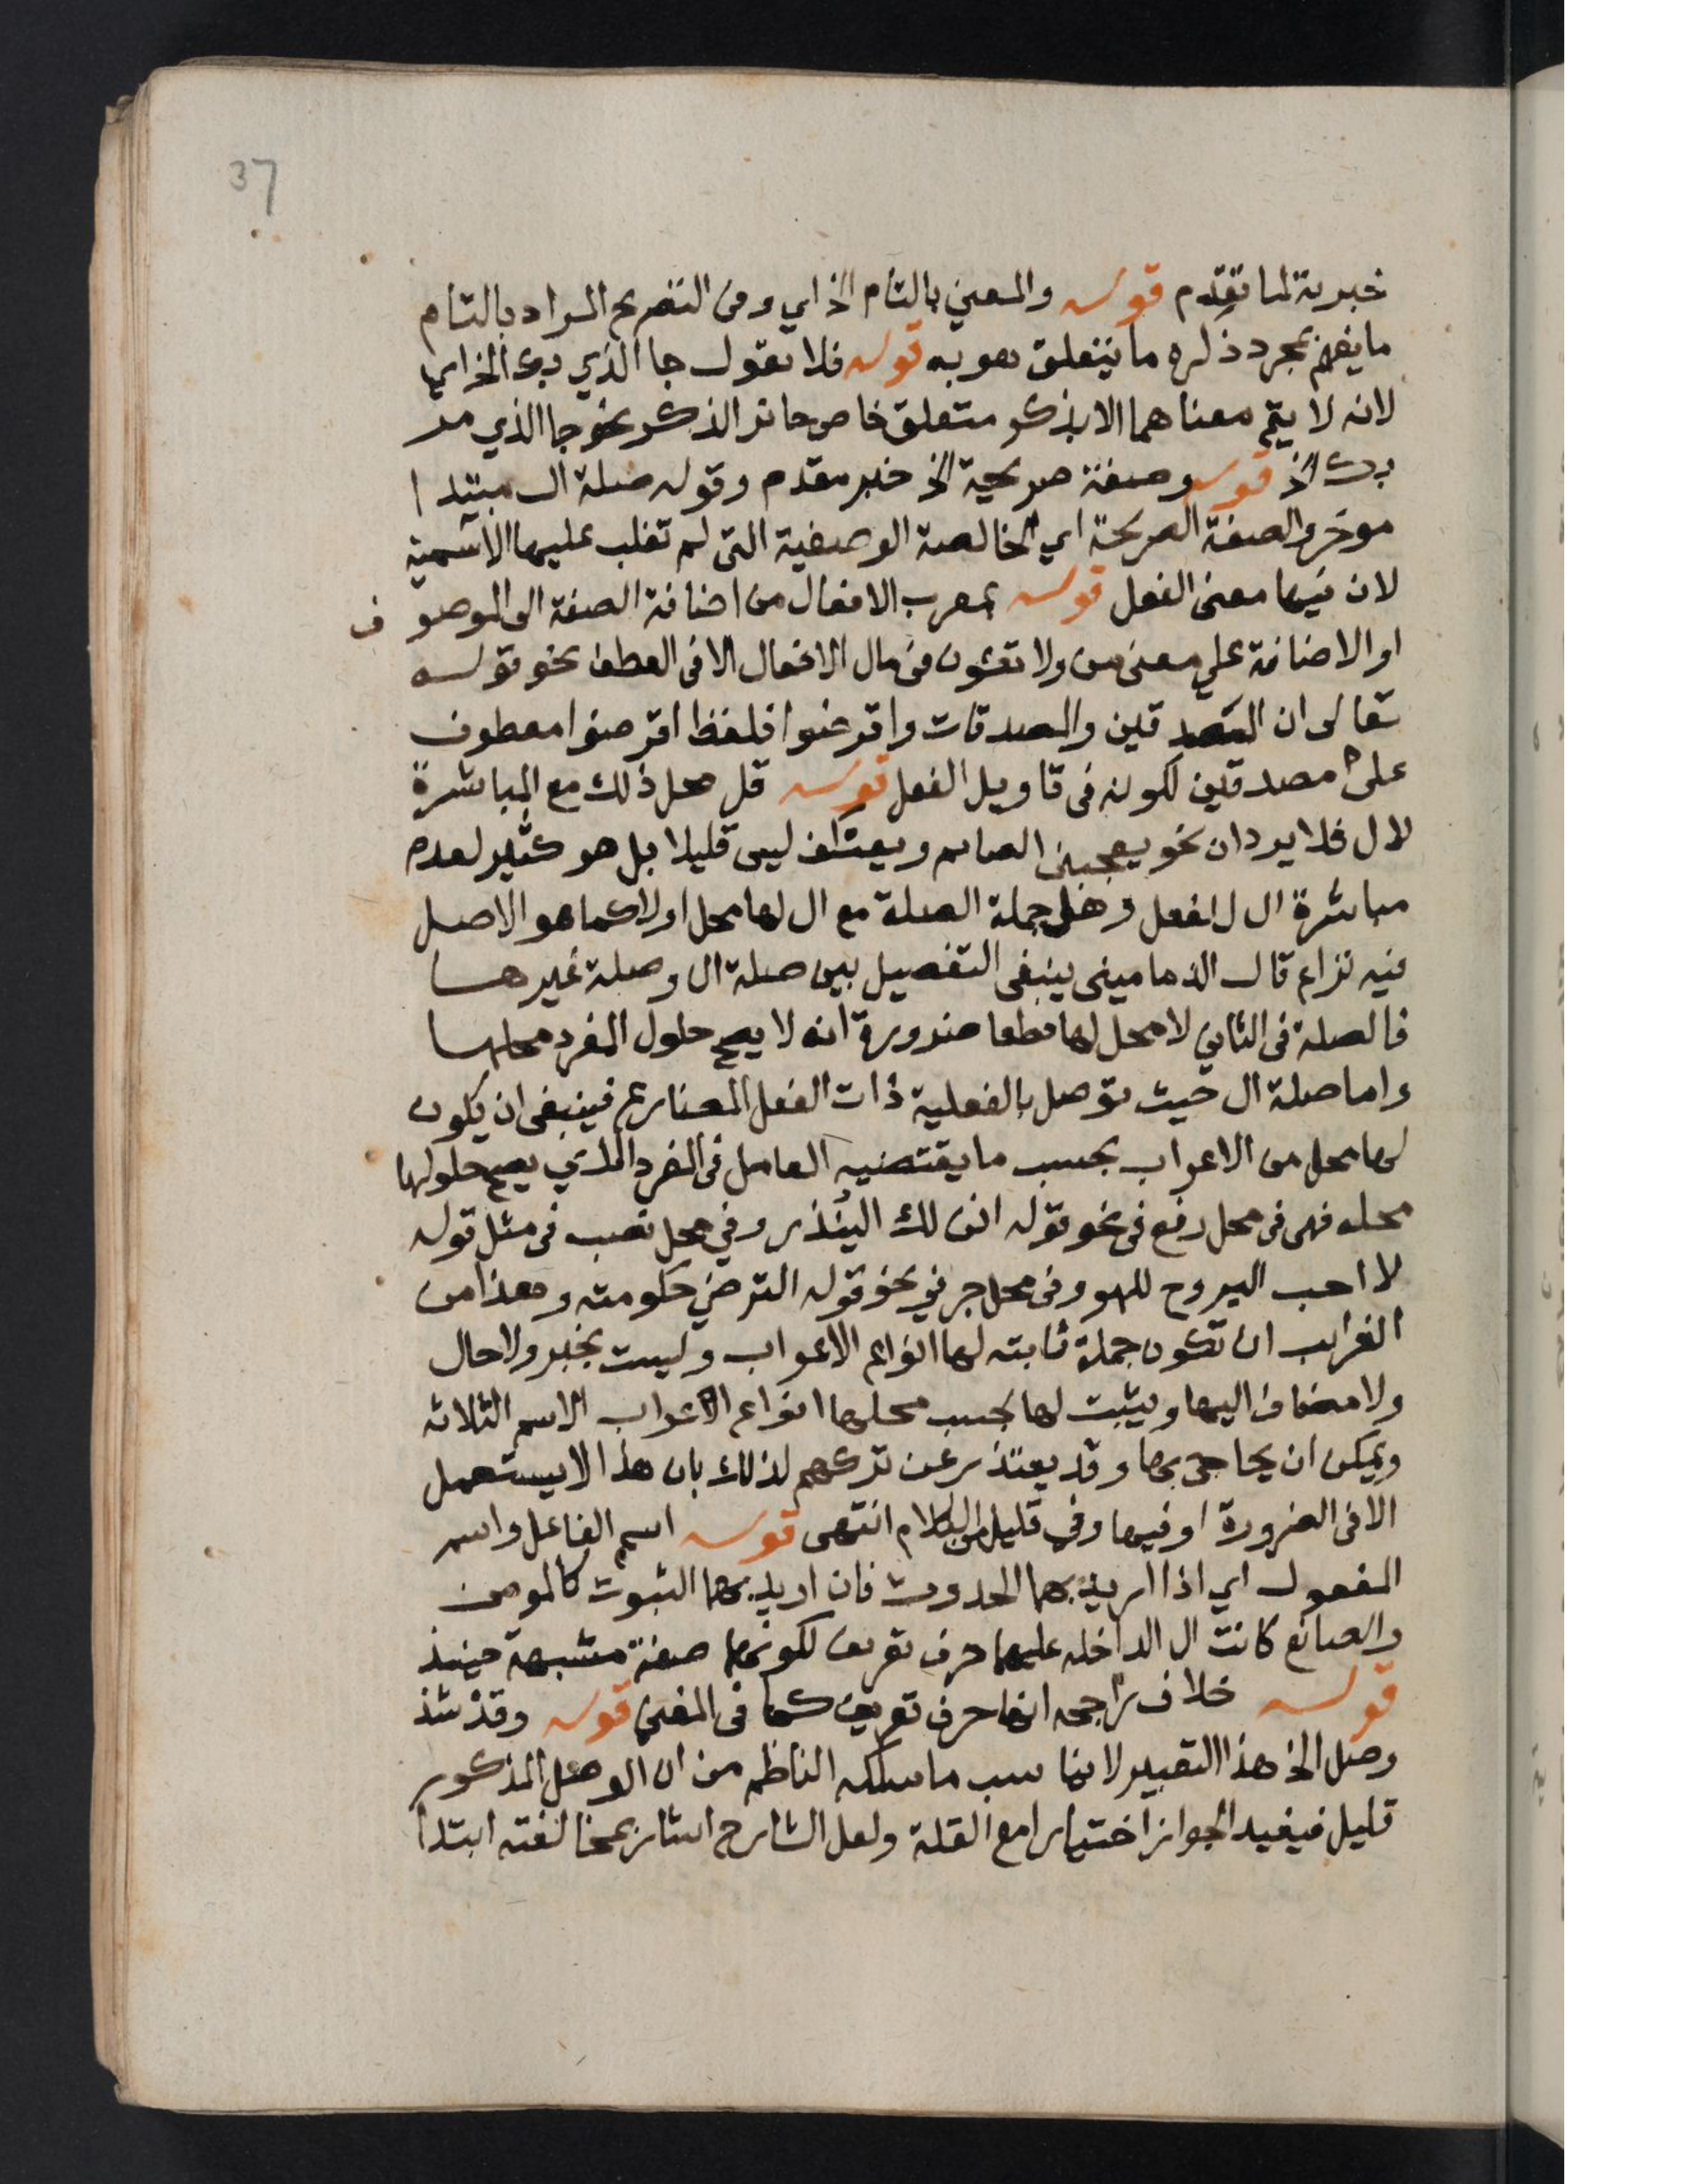 37
خبرية لما تقدم قوله والمعني بالتام الخ اي ومن التصريح المراد بالتام
ما يفهم بمجرد ذكره ما يتعلق هو به قوله فلا تقول جا الذي بك الخ اي
لانه لا يتم معناهما الا بذكر متعلق خاص جائز الذكر نحو جا الذي مر
بك الخ قوله وصفة صريحة الخ خبر مقدم وقوله صلة ال مبتدا
موخر والصفة الصريحة اي الخالصة الوصفية التى لم تغلب عليها الاسمية
لان فيها معنى الفعل قوله بمعرب الافعال من اضافة الصفة الى الموصوف
او الاضافة على معنى من ولا تكون في مال الافعال الا فى العطف نحو قوله
تعالى ان المصدقين والمصدقات واقرضوا فلفظ اقرضوا معطوف
على مصدقين لكونه فى تاويل الفعل قوله قل محل ذلك مع المباشرة
لال فلا يرد ان نحو يعجبنى الصايم ويعتكف ليس قليلا بل هو كثير لعدم
مباشرة ال للفعل وهل جملة الصلة مع ال لها محل اولا كما هو الاصل
فيه نزاع قال الدمامينى ينبغى التفصيل بين صلة ال وصلة غيرها
فالصلة فى الثاني لا محل لها قطعا ضرورة انه لا يصح حلول المفرد محلها
واما صلة ال حيث توصل بالفعلية ذات الفعل المضارع فينبغى ان يكون
لها محل من الاعراب بحسب ما يقتضيه العامل فى المفرد الذي يصح حلولها
محله فهى فى محل رفع فى نحو قوله انى لك الينذر وفي محل نصب فى مثل قوله
لا احب اليروح للهو وفى محل جر في نحو قوله الترضي حكومته وهذا من
الغرايب ان تكون جملة ثابته لها انواع الاعراب وليست بخبر ولا حال
ولا مضاف اليها ويثبت لها بحسب محلها انواع الاعراب الاسم الثلاثه
ويمكن ان يحاجى بها وقد يعتذر عن تركهم لذلك بان هذا لا يستعمل
الا فى الضرورة او فيها وفي قليل من الكلام انتهى قوله اسم الفاعل واسم
المفعول اي اذا اريد بهما الحدوث فان اريد بهما الثبوت كالمومن
والصانع كانت ال الداخله عليهما حرف تعريف لكونهما صفة مشبهة حينئذ
قوله خلاف راجحه انها حرف تعريف كما فى المغني قوله وقد شذ
وصل الخ هذا التعبير لا يناسب ما سلكه الناظم من ان الوصل المذكور
قليل فيفيد الجواز اختيارا مع القلة ولعل الشارح اشار بمخالفته ابتدا